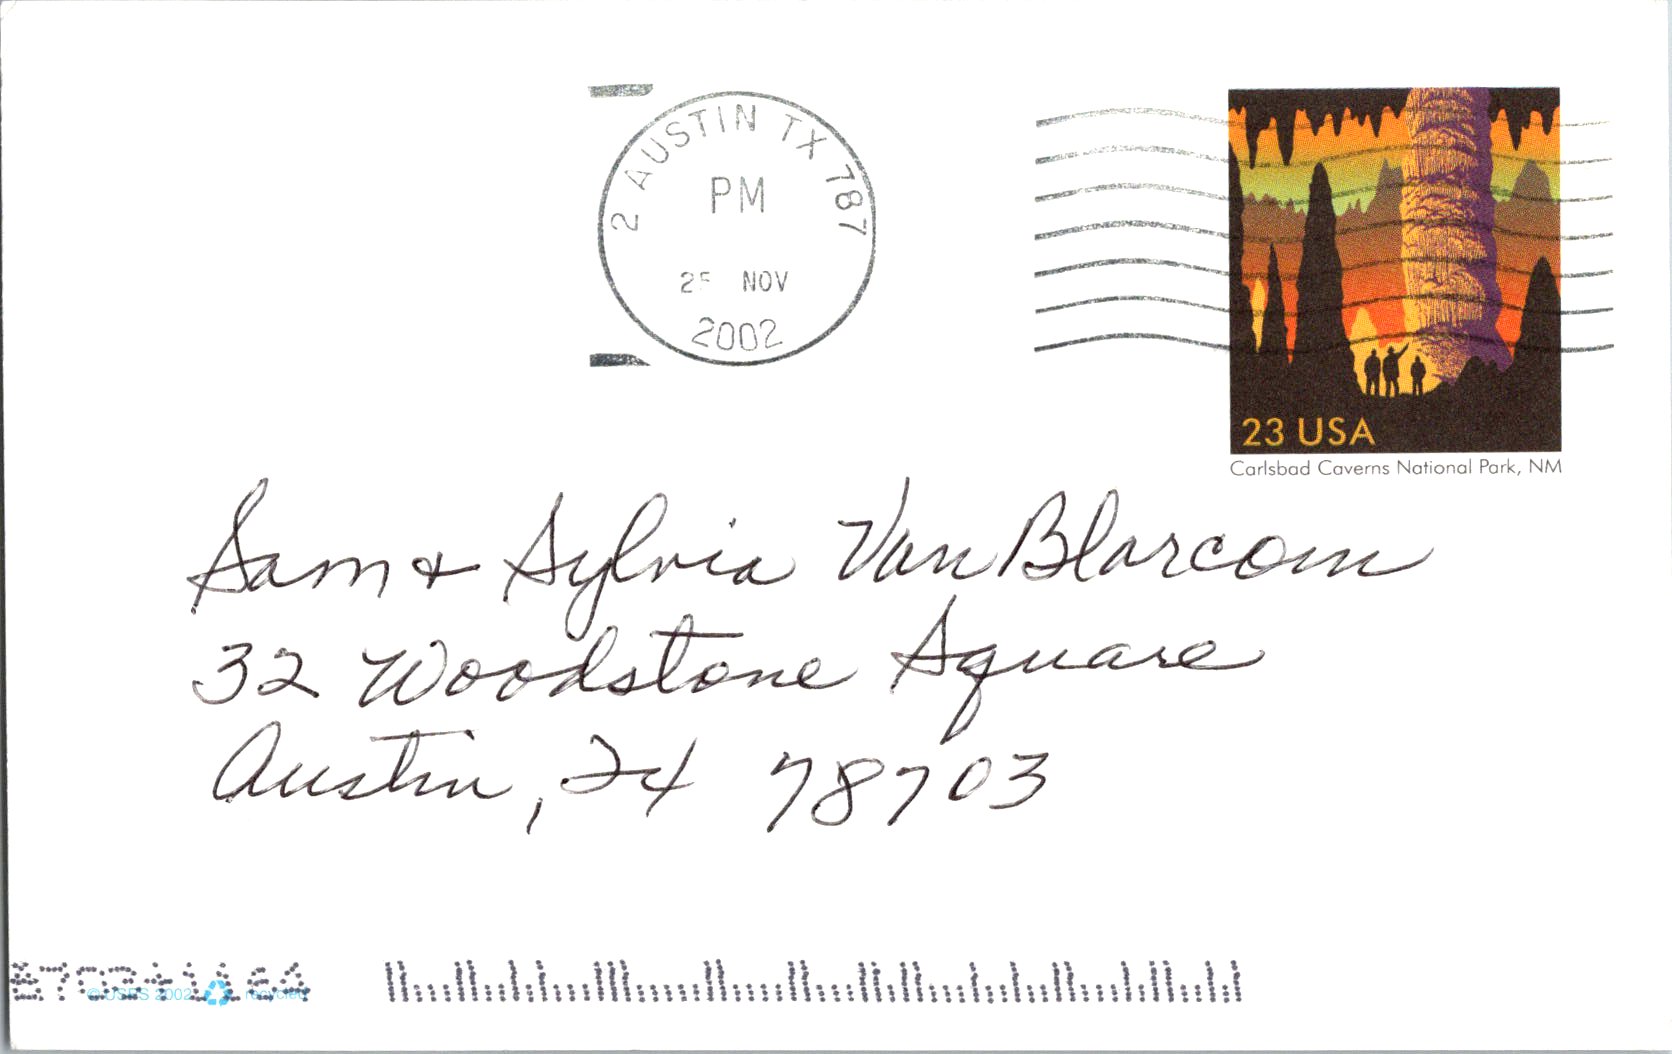 2 AUSTIN TX 787
PM
25 NOV
2002
23 USA
Carlsbad Caverns National Park, NM
Sam & Sylvia Van Blarcom
32 Woodstone Square
Austin, TX 78703
© USPS 2002 recycled